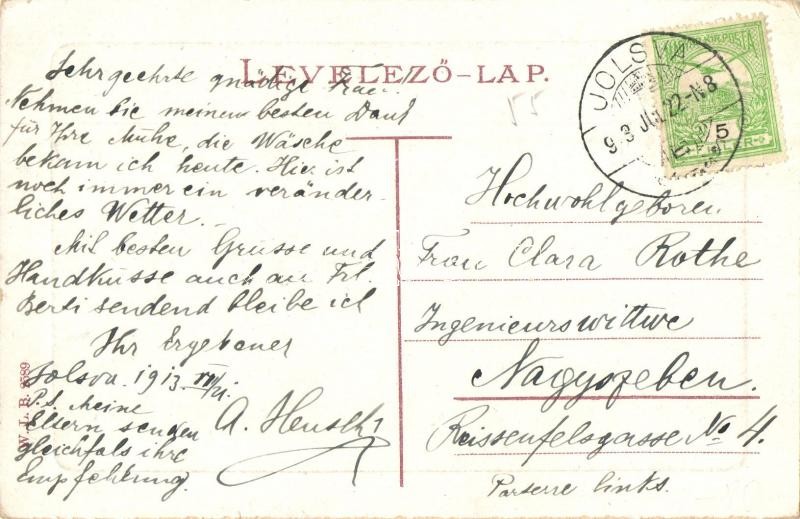 LEVELEZŐ-LAP.
Sehrgeehrte gnädige Frau!
Nehmen Sie meinen besten Dank
für Ihre Mühe, die Wäsche
bekam ich heute. Hier ist
noch immer ein veränder-
liches Wetter.
Mit besten Grüsse und
Handküsse auch an Frl.
Berti sendend bleibe ich
Ihr Ergebener
Jolsva. 1913. VII/21.
P.S. Meine
Eltern senden
gleichfals ihre
Empfehlung.
A.
W. L. B. 2589
55
JOLSVA
913 JUL 22-N8
5
Hochwohlgeboren
Frau Clara Rothe
Ingenieurswittwe
Nagyszeben.
Reissenfelsgasse No 4.
Parterre links.